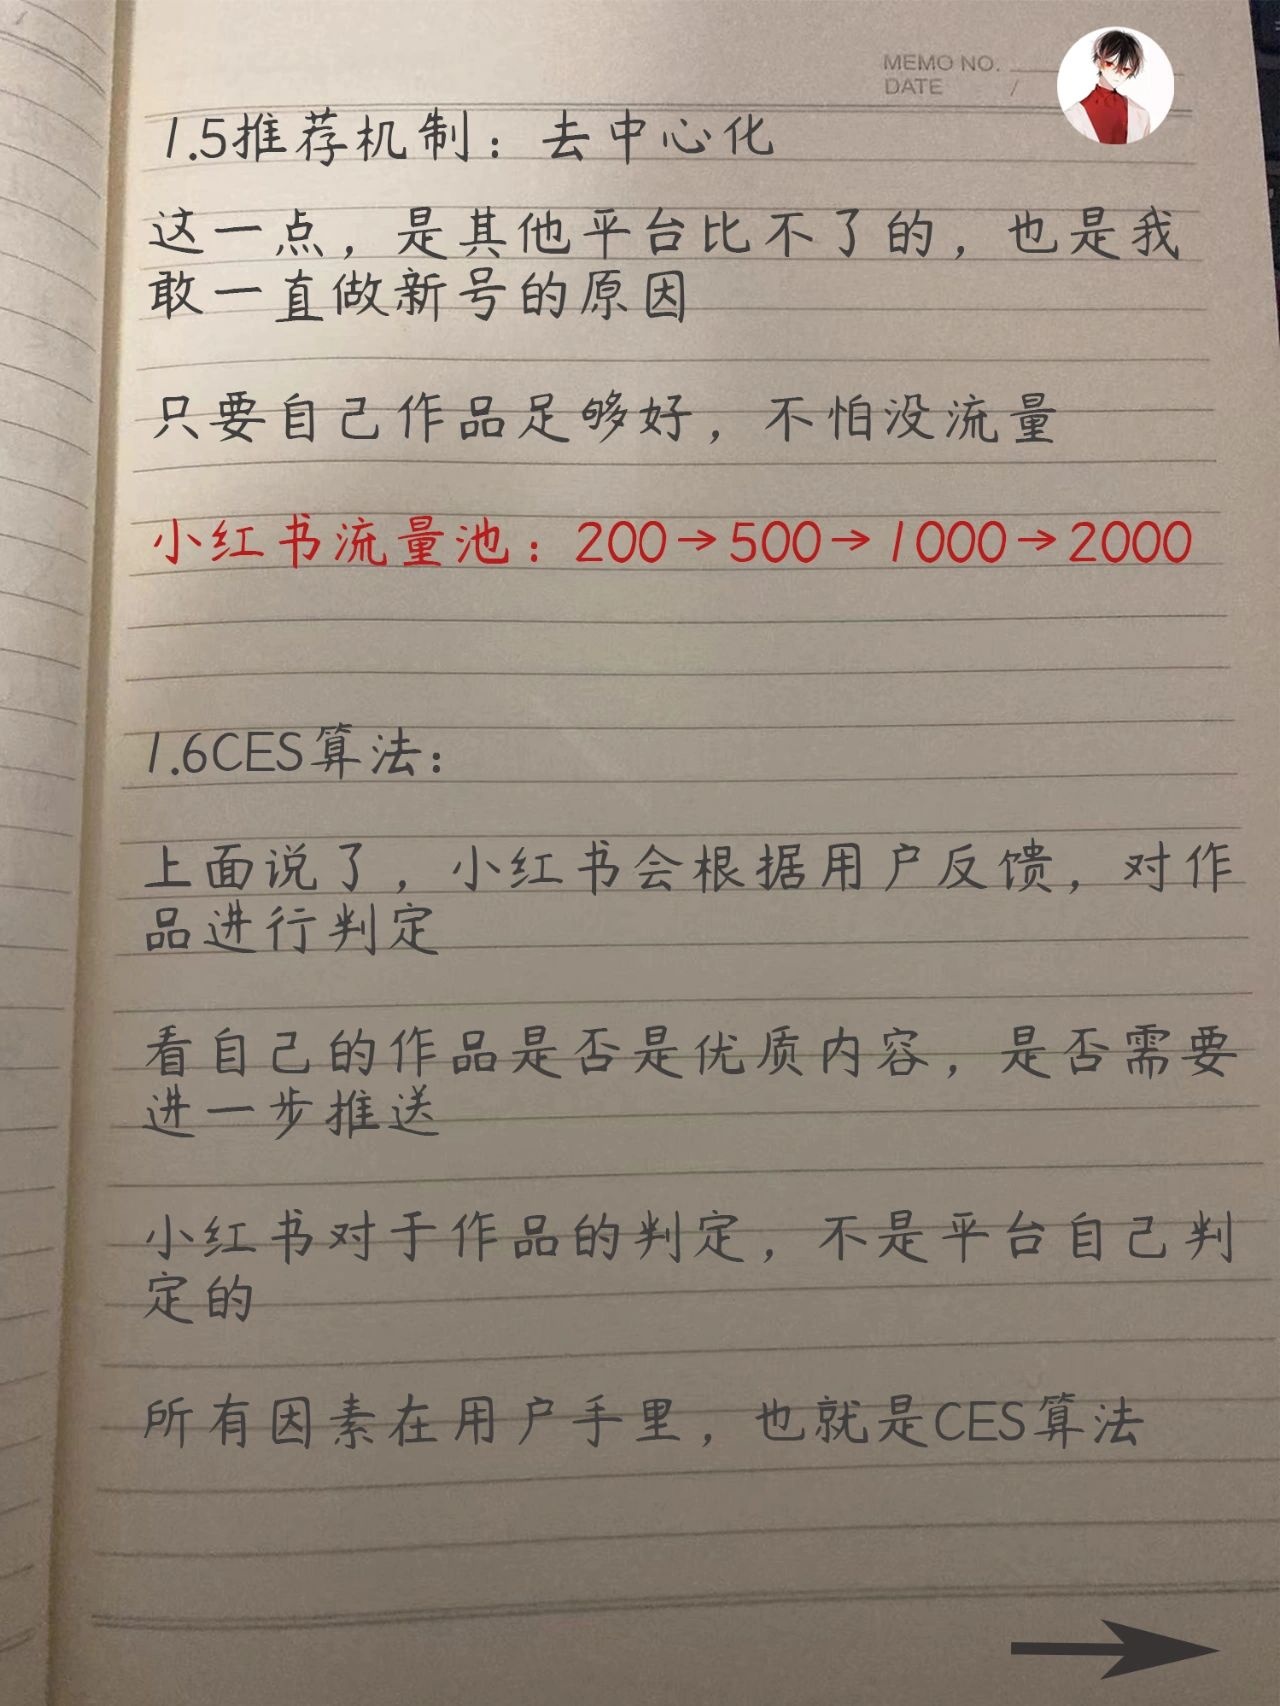 MEMO NO.
DATE /
1.5推荐机制：去中心化
这一点，是其他平台比不了的，也是我
敢一直做新号的原因
只要自己作品足够好，不怕没流量
小红书流量池：200→500→1000→2000
1.6CES算法：
上面说了，小红书会根据用户反馈，对作
品进行判定
看自己的作品是否是优质内容，是否需要
进一步推送
小红书对于作品的判定，不是平台自己判
定的
所有因素在用户手里，也就是CES算法